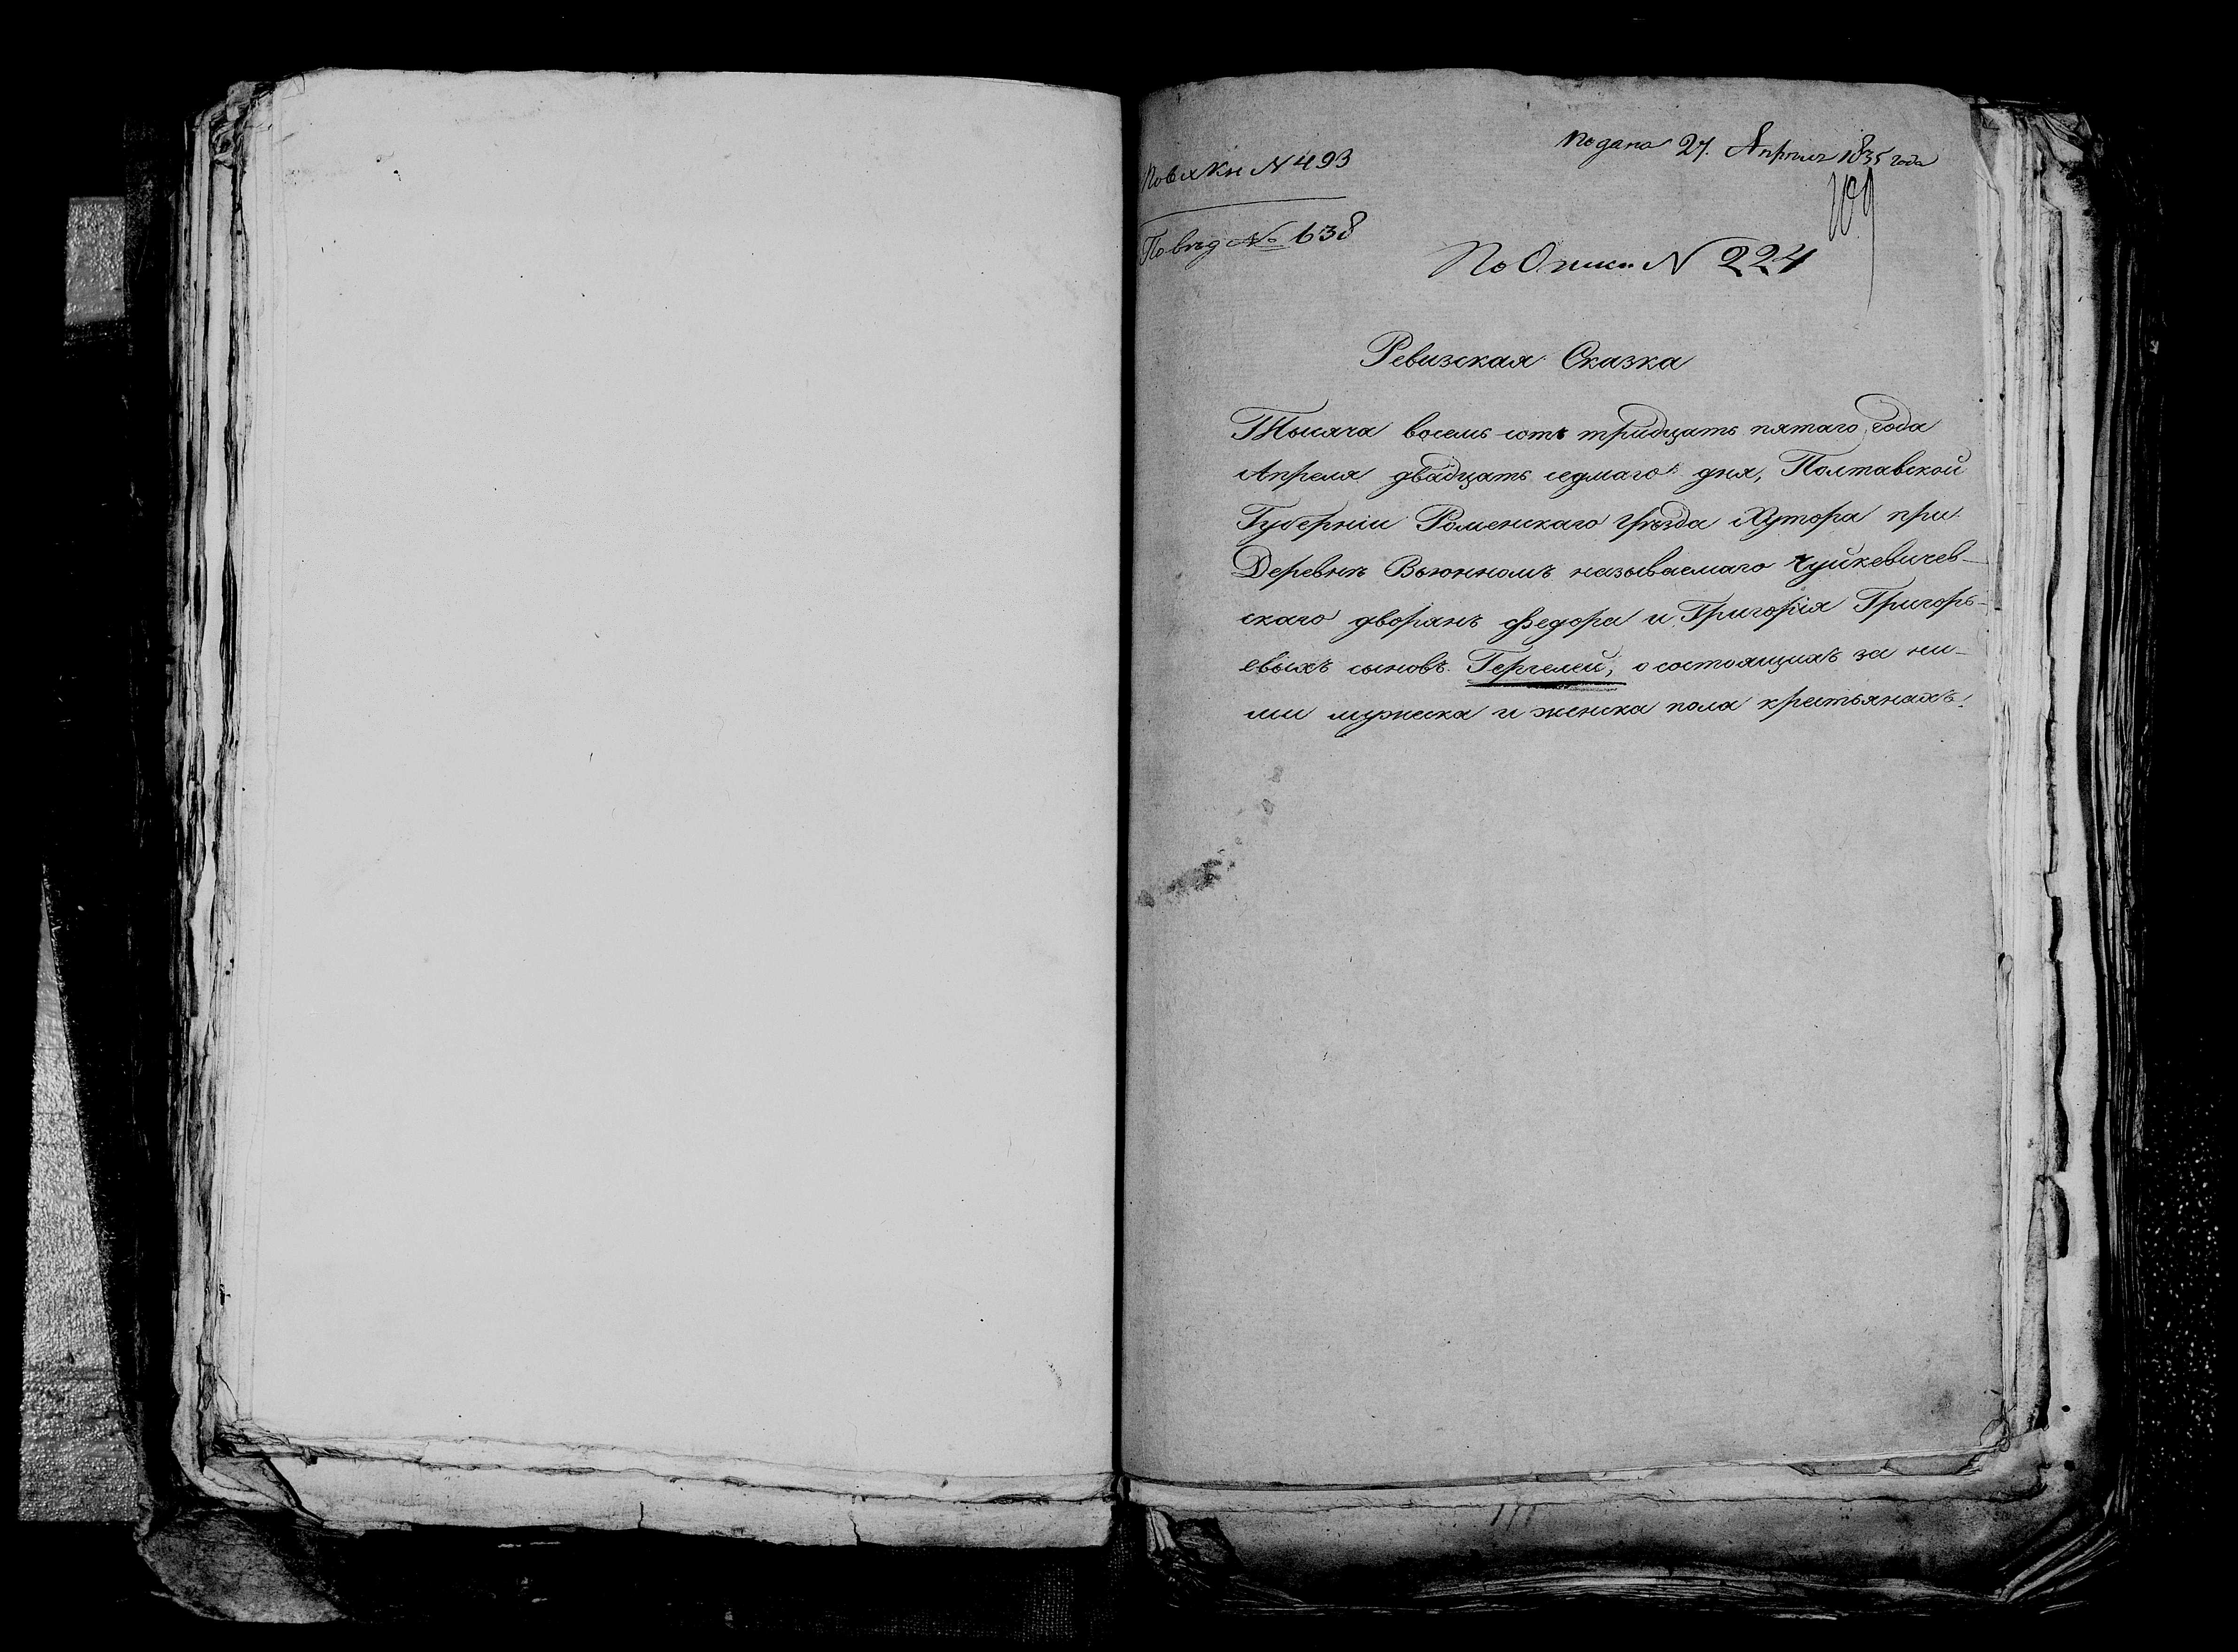 По вх Кн N 493
По вѣд № 638
Подана 27. Апреля 1835 года
109
По Описи N 224
Ревизская Сказка
Тысяча восемь сотъ тридцать пятаго года
Апреля двадцать седмаго дня, Полтавской
Губерніи Роменскаго уѣзда Хутора при
Деревнѣ Вьюнномъ называемаго Чуйкевичев-
скаго дворянъ Федора и Григорія Григорь-
евыхъ сыновъ Гергелей, о состоящихъ за ни-
ми мужеска и женска пола крестьянахъ.